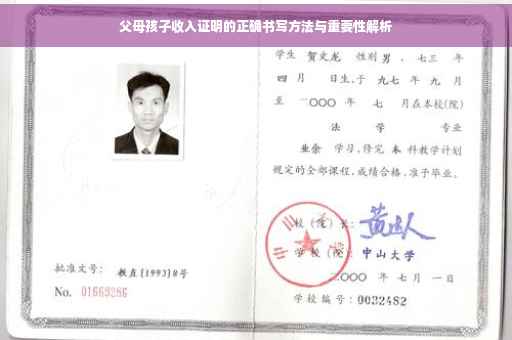 父母孩子收入证明的正确书写方法与重要性解析
学生 贺文龙 性别 男 、七三 年
四 月 日生,于 九七 年 九 月
至 二〇〇〇 年 七 月在本校(院)
法 学 专业
业余 学习,修完 本 科教学计划
规定的全部课程,成绩合格,准予毕业。
校(院)长:
学校(院): 中山大学
二〇〇〇 年 七 月 一 日
批准文号: 教直[1993]8号
No. 01669286
学校编号: 0032482